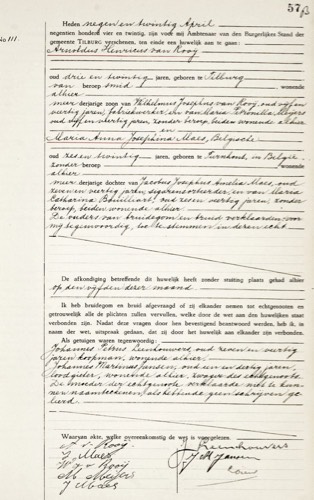 57
No 111.
Heden negen en twintig April
negentien honderd vier en twintig, zijn voor mij Ambtenaar van den Burgerlijken Stand der
gemeente TILBURG verschenen, ten einde een huwelijk aan te gaan:
Arnoldus Henricus van Rooy
oud drie en twintig jaren, geboren te Tilburg
van beroep smid wonende
alhier
meerderjarige zoon van Wilhelmus Josephus van Rooy, oud vijf en
veertig jaren, fabriekwerker, en van Maria Petronilla Meijers
oud vijf en veertig jaren, zonder beroep, beiden wonende alhier
en
Maria Anna Josephina Maes, Belgische
oud zes en twintig jaren, geboren te Turnhout, in België
zonder beroep wonende
alhier
meerderjarige dochter van Jacobus Josephus Amelia Maes, oud
zeven en veertig jaren, sigarensorteerder, en van Maria
Catharina Bouilliart, oud zes en veertig jaren, zonder
beroep, beiden wonende alhier
De ouders van bruidegom en bruid verklaarden voor
mij tegenwoordig, toe te stemmen in dezen echt
De afkondiging betreffende dit huwelijk heeft zonder stuiting plaats gehad alhier
op den vijfden dezer maand
Ik heb bruidegom en bruid afgevraagd of zij elkander nemen tot echtgenooten en
getrouwelijk alle de plichten zullen vervullen, welke door de wet aan den huwelijken staat
verbonden zijn. Nadat deze vragen door hen bevestigend beantwoord werden, heb ik, in
naam der wet, uitspraak gedaan, dat zij door het huwelijk aan elkander zijn verbonden.
Als getuigen waren tegenwoordig:
Johannes Petrus oud zeven en veertig
jaren, koopman, wonende alhier,
Johannes Martinus Jansen, oud een en dertig jaren,
loodgieter, wonende alhier, zwager der echtgenoote.
De moeder der echtgenoote verklaarde niet te kun-
nen naamteekenen, als hebbende geen schrijven ge-
leerd
Waarvan akte, welke overeenkomstig de wet is voorgelezen.
A v. Rooij
J Maes
W. J. v Rooij
M. Meijers
J Maes
J M Jansen